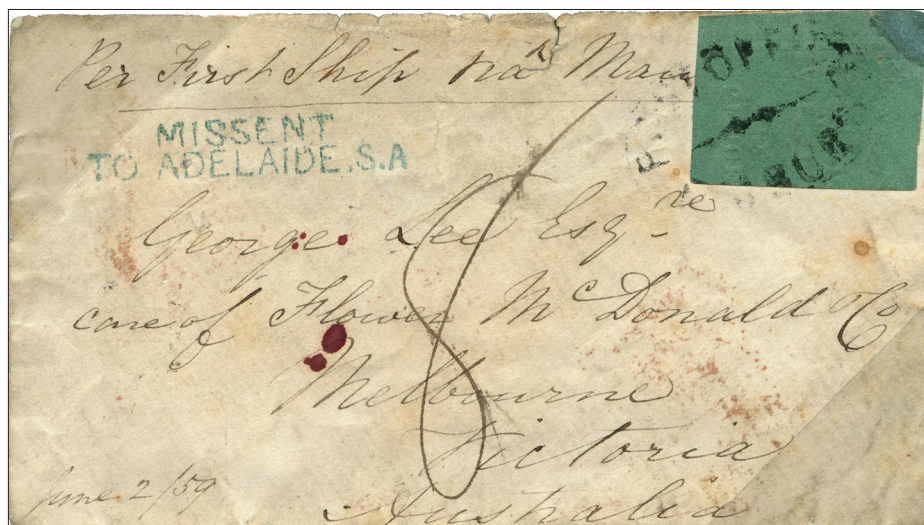 Per First Ship via Mau
POST OFFI
MISSENT
TO ADELAIDE.S.A
8
George Lee Esqre
care of Flower McDonald & Co
Melbourne
Victoria
Australia
June 2/59